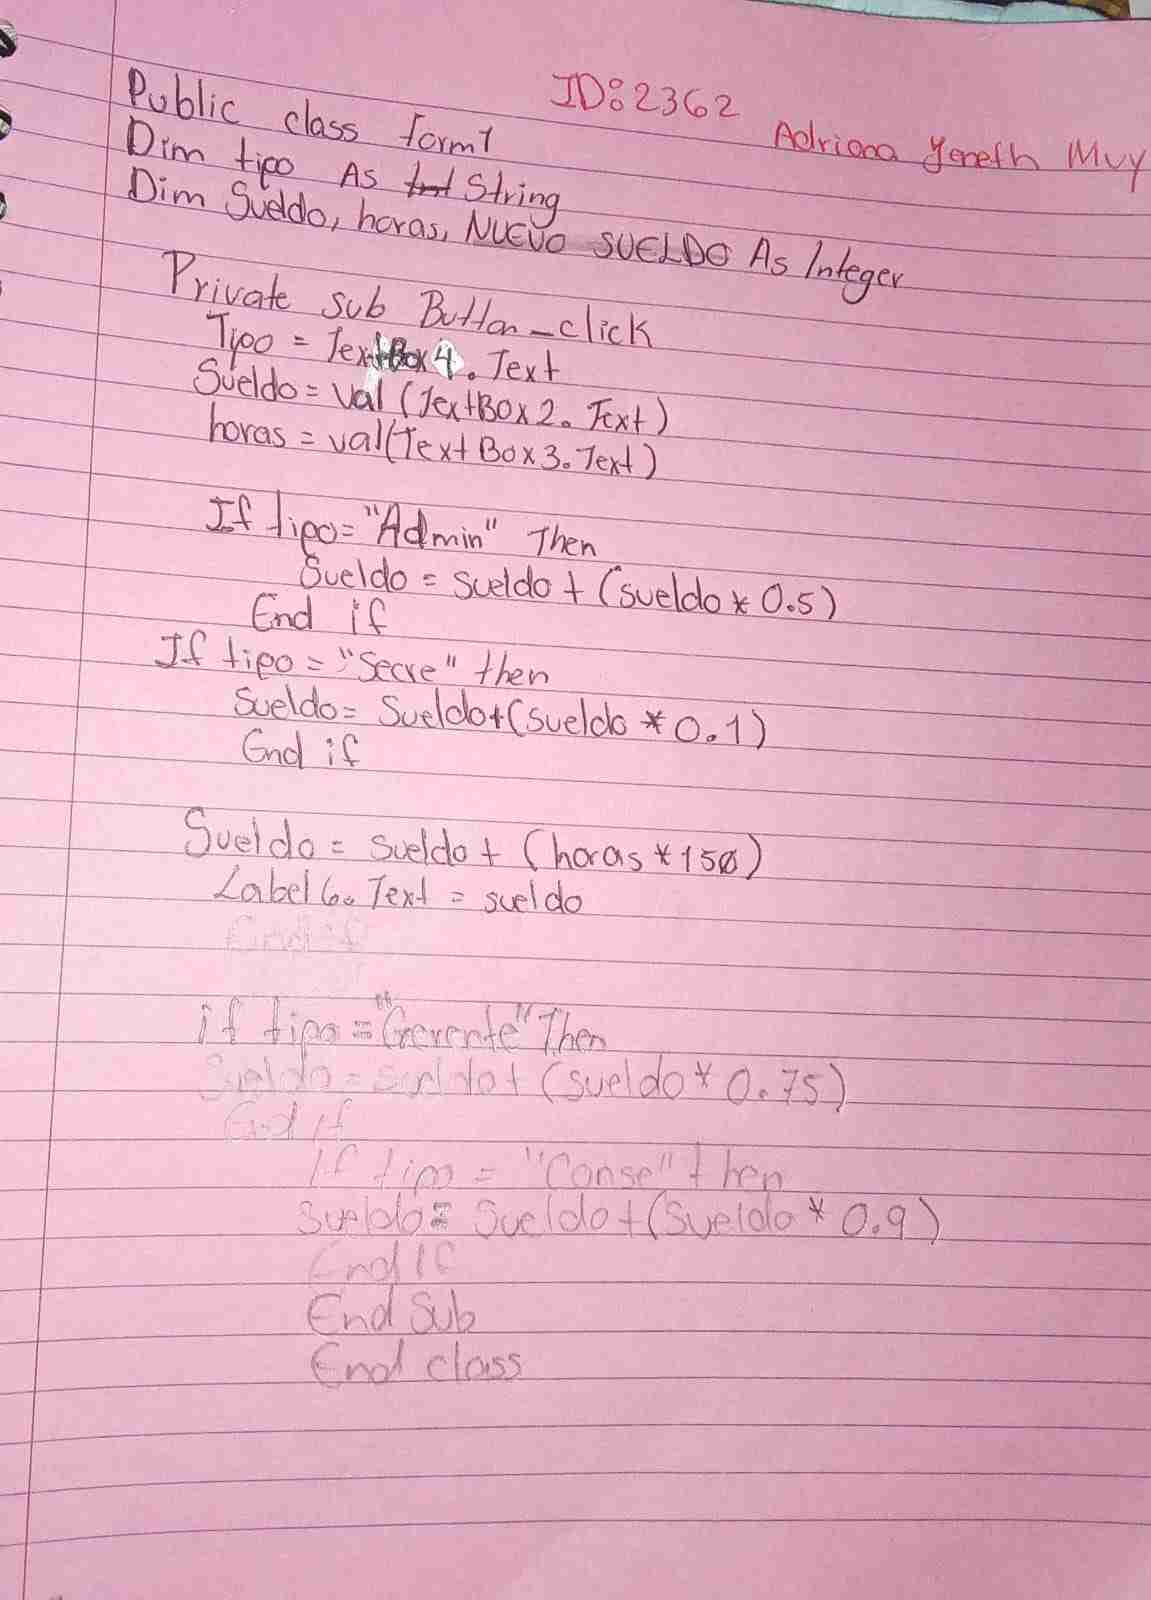 ID:2362
Adriana Yeneth Muy
Public class form1
Dim tipo As String
Dim Sueldo, horas, NUEVO SUELDO As Integer
Private sub Button_click
Tipo = TextBox4.Text
Sueldo = Val (TextBox2.Text)
horas = val(TextBox3.Text)
If tipo= "Admin" Then
Sueldo = sueldo + (sueldo * 0.5)
End if
If tipo = "Secre" then
Sueldo= Sueldo+(sueldo * 0.1)
End if
Sueldo = sueldo + (horas * 150)
Label6. Text = sueldo
End if
if tipo = "Gerente" Then
Sueldo = sueldo + (sueldo * 0.75)
End if
If tipo = "Conse" then
Sueldo = Sueldo + (Sueldo * 0.9)
End If
End Sub
End class